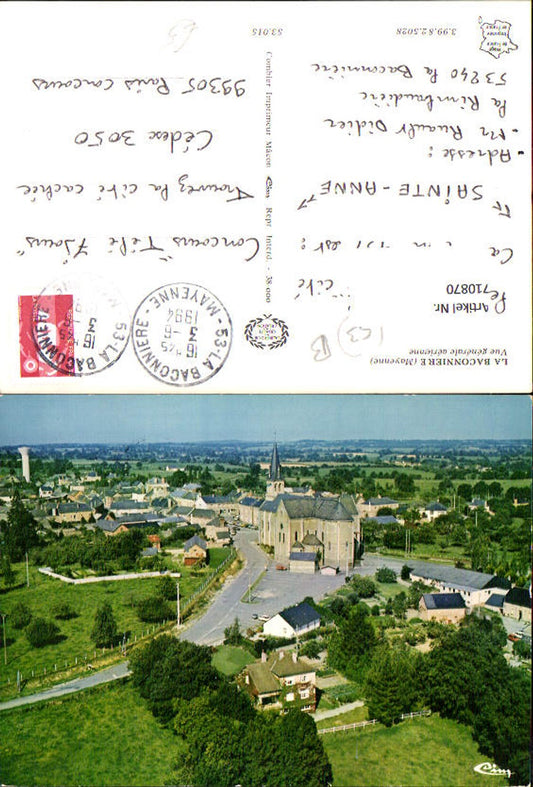 LA BACONNIERE (Mayenne)
Vue générale aérienne
Artikel Nr.
710870
cité
Ca est :
" SAINTE-ANNE "
- Adresse :
- Mr Ruault Didier
la Rimbaudière
53240 la Baconnière
3.99.8.2.5028
53.015
Combier Imprimeur Mâcon Cim Repr Interd. - 38 000
53-LA BACONNIERE - MAYENNE
16H45
3-6
1984
53-LA BACONNIERE
16H45
3
Concours Télé 7 Jours
Trouvez la cité cachée
Cédex 3050
99305 Paris concours
Cim